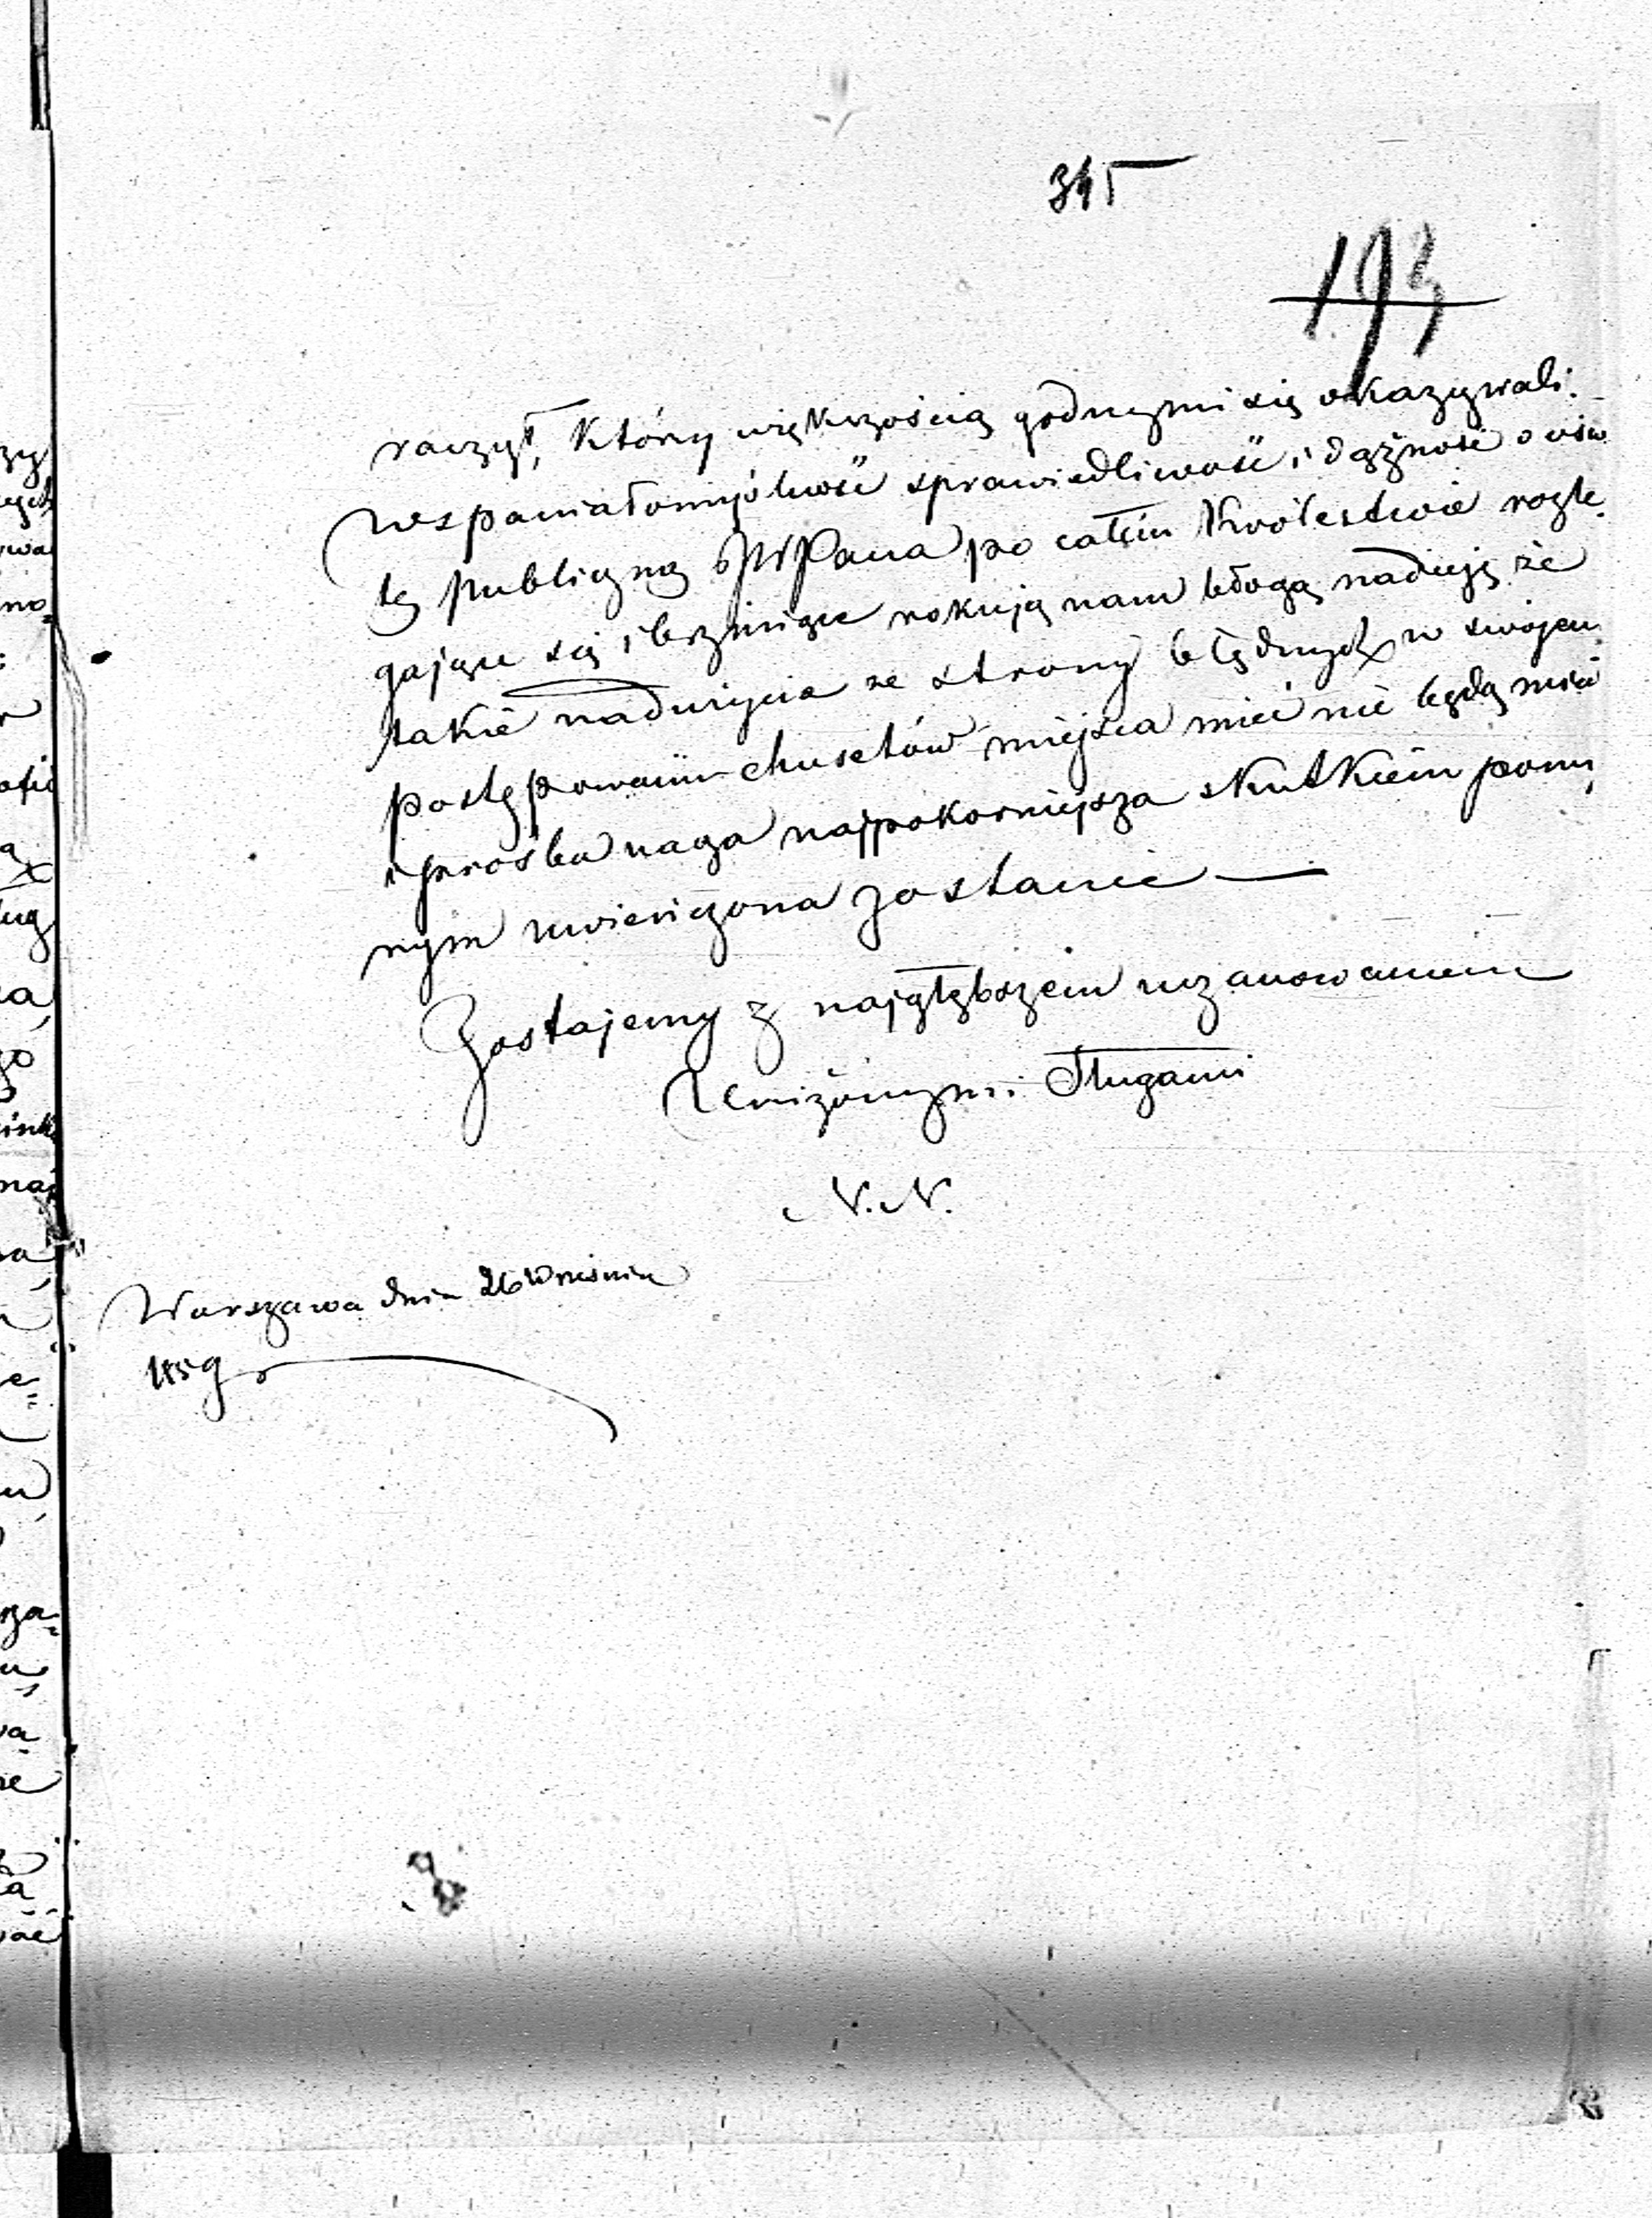 345
193
raczył, który większością godnymi się okazywali.
Wspaniałomyślność sprawiedliwość i dążność o oświa
tę publiczną JWPana po całém Królestwie rozle
gające się i brzmiące rokują nam błogą nadzieję że
takie nadużycia ze strony błędnych w swojem
postępowaniu chusetów miejsca mieć nie będą mieć
i prośba nasza najpokorniejsza skutkiem pomy
nym uwieńczona zostanie —
Zostajemy z najgłębszem uszanowaniem
Uniżonymi Sługami
N. N.
Warszawa dnia 26 Września
1859 r